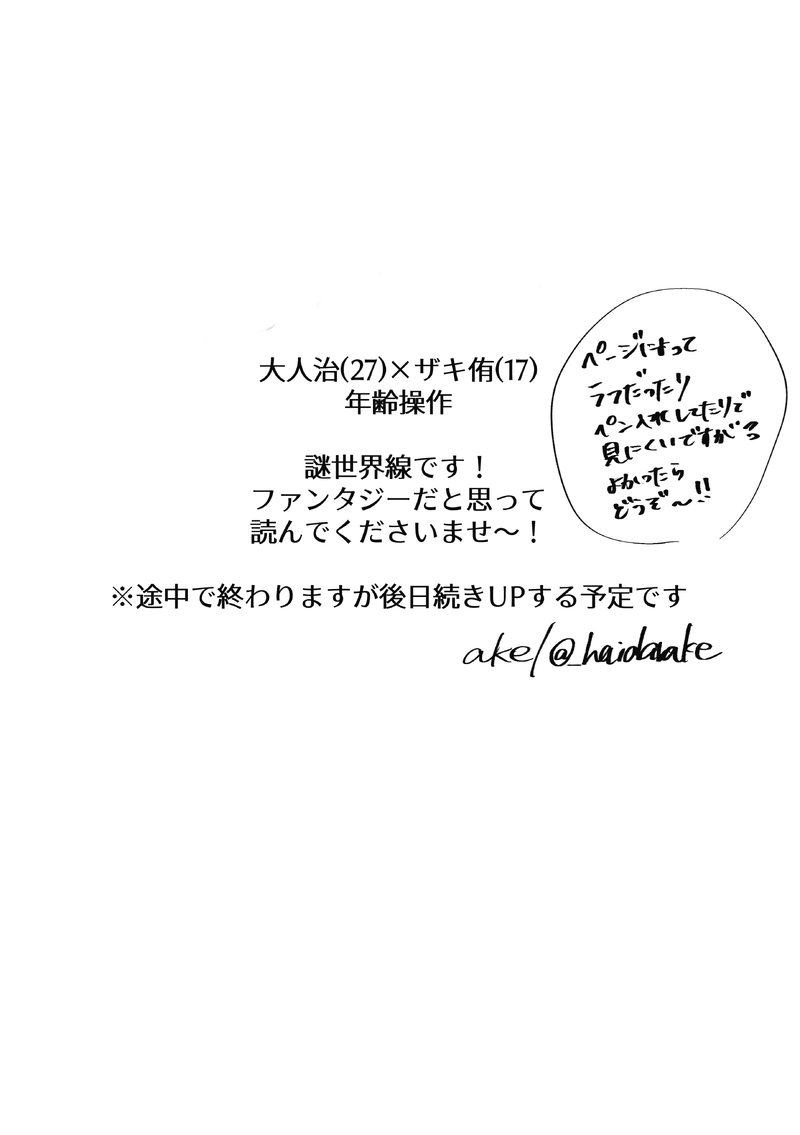 大人治(27)×ザキ侑(17)
年齢操作
謎世界線です！
ファンタジーだと思って
読んでくださいませ～！
※途中で終わりますが後日続きUPする予定です
ake/@_haidarake
ページによって
ラフだったり
ペン入れしてたりで
見にくいですが
よかったら
どうぞ～!!